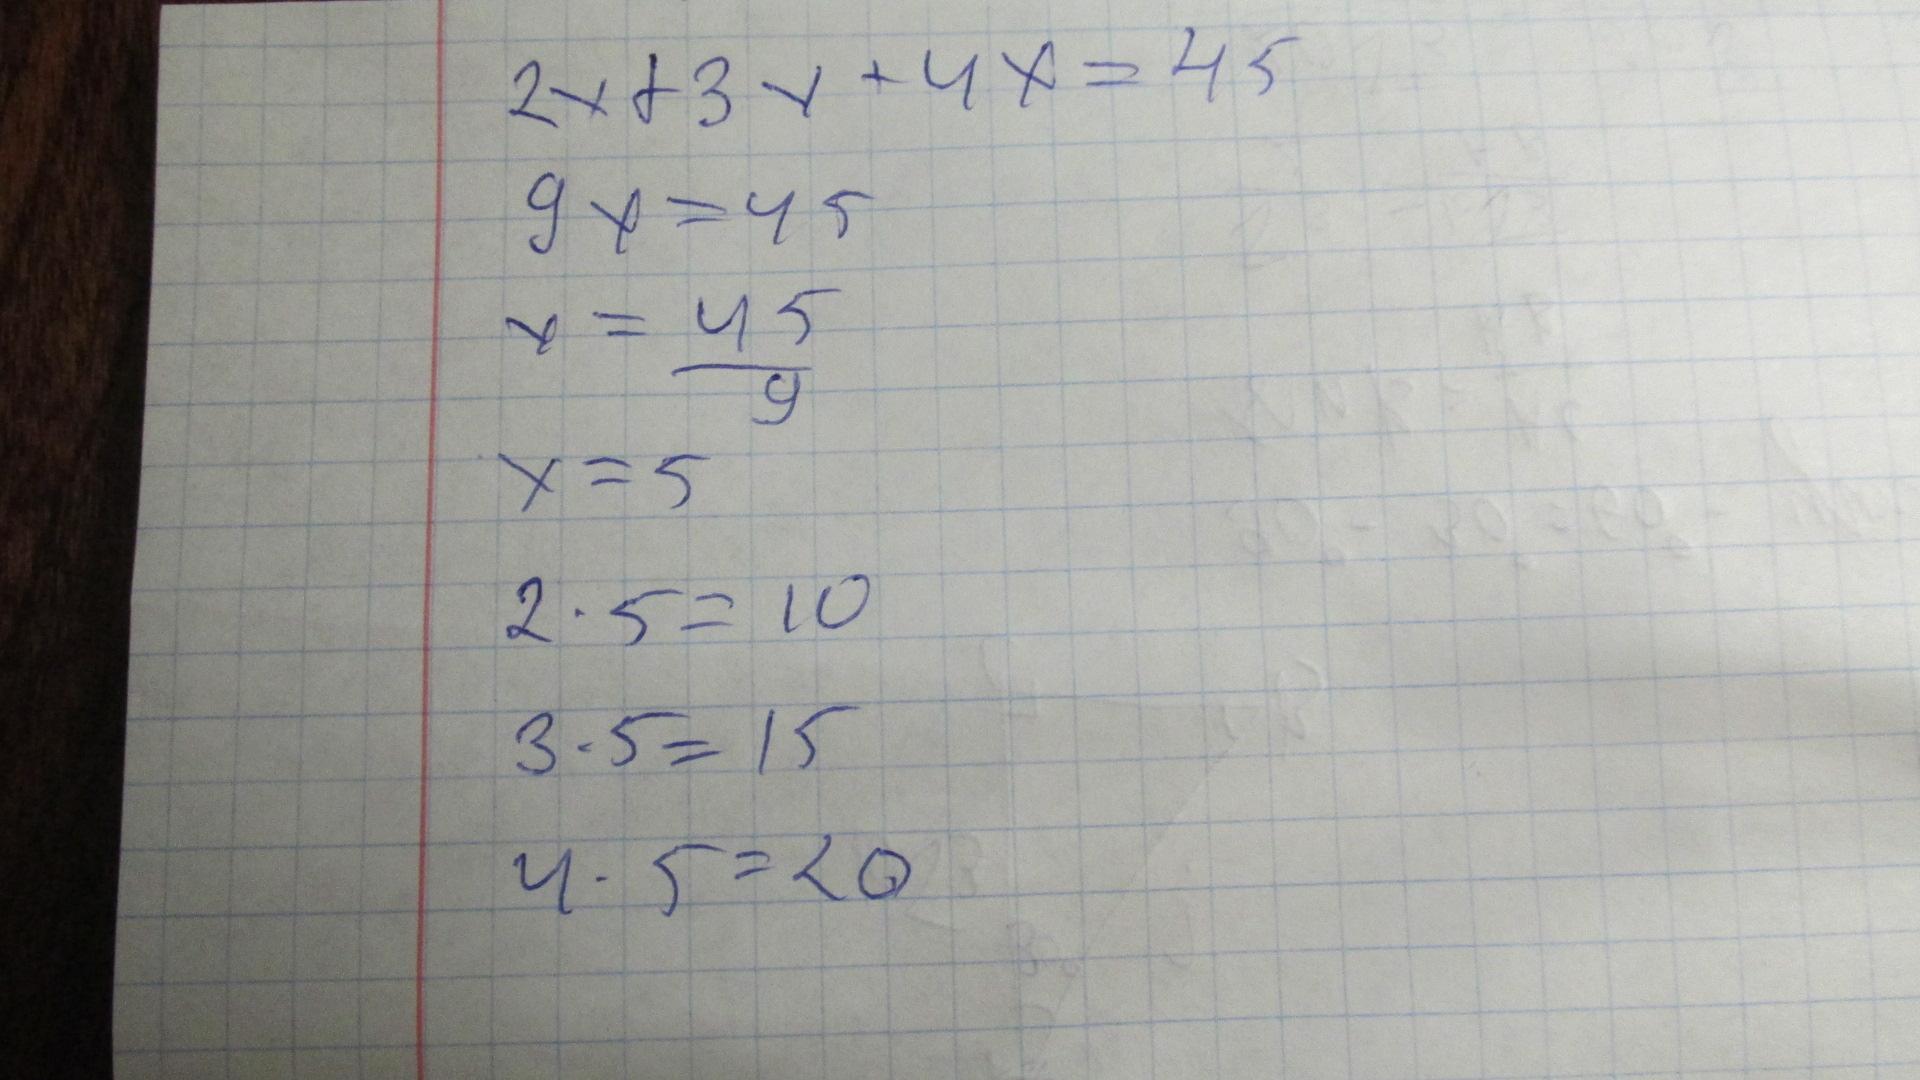 2x+3x+4x=45
9x=45
x=45/9
x=5
2·5=10
3·5=15
4·5=20